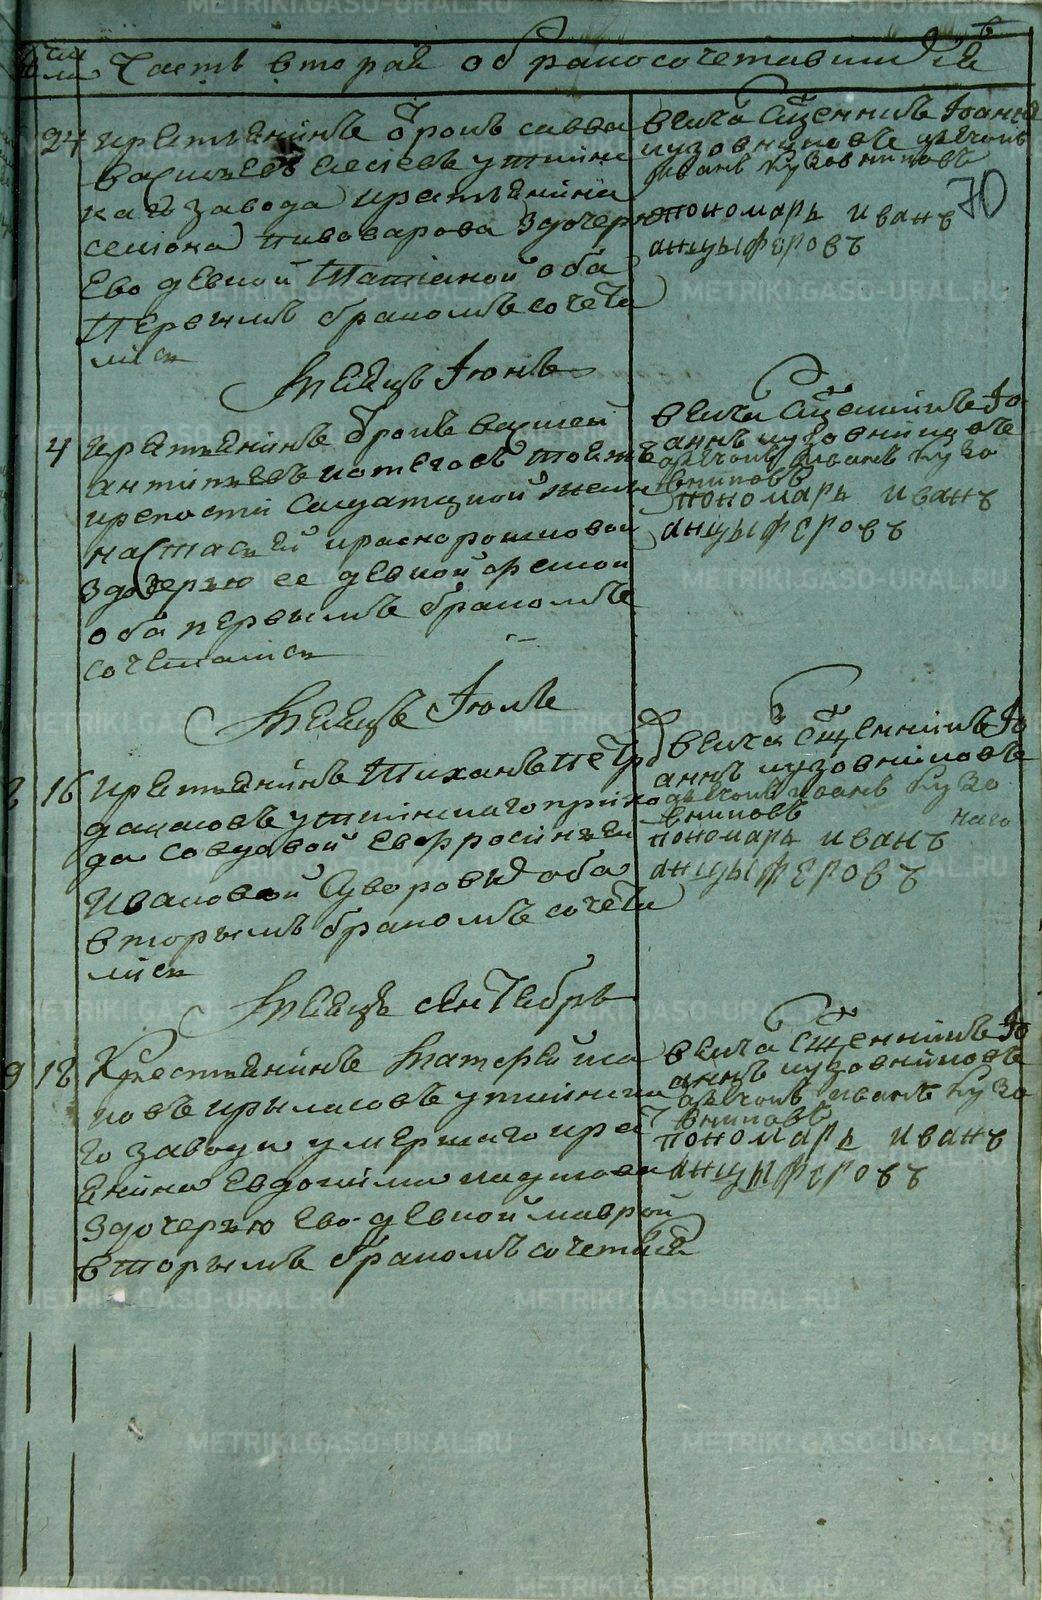 Часть вторая о бракосочетавшихся
24 крестьянинъ отрокъ савва
васильевъ елесеевъ уткинс
каго завода крестьянина
семиона пивоварова здочерью
ево девкой Татианой оба
Первымъ бракомъ сочета
лися
венчалъ Священникъ Іоаннъ
кузовниковъ дьячокъ
Иванъ Кузовниковъ
пономарь иванъ
анцыферовъ
70
Месяцъ Іюнь
4 крестьянинъ отрокъ василей
антипьевъ тоежъ
крепости Салдатцкой жены
настасьи
здочерью ее девкой феклой
оба первымъ бракомъ
сочеталися
венчалъ Священникъ Іо
аннъ кузовниковъ
дьячокъ иванъ кузо
вниковъ
пономарь иванъ
анцыферовъ
Месяцъ Іюль
16 крестьянинъ Тиханъ Петро
уткинскаго прихо
да совдовой Евфросиньей
Ивановой Суворовыхъ оба
вторымъ бракомъ сочета
лися
венчалъ Священникъ Іо
аннъ кузовниковъ
дьячокъ иванъ кузо
вниковъ
пономарь иванъ
анцыферовъ
Месяцъ сентебрь
9 18 Крестьянинъ
новъ крыласовъ уткинска
го завода умершаго крест
енина Евдокима
здочерью Ево девкой маврой
вторымъ бракомъ сочетался
венчалъ Священникъ Іо
аннъ кузовниковъ
дьячокъ иванъ кузо
вниковъ
пономарь иванъ
анцыферовъ
METRIKI.GASO-URAL.RU